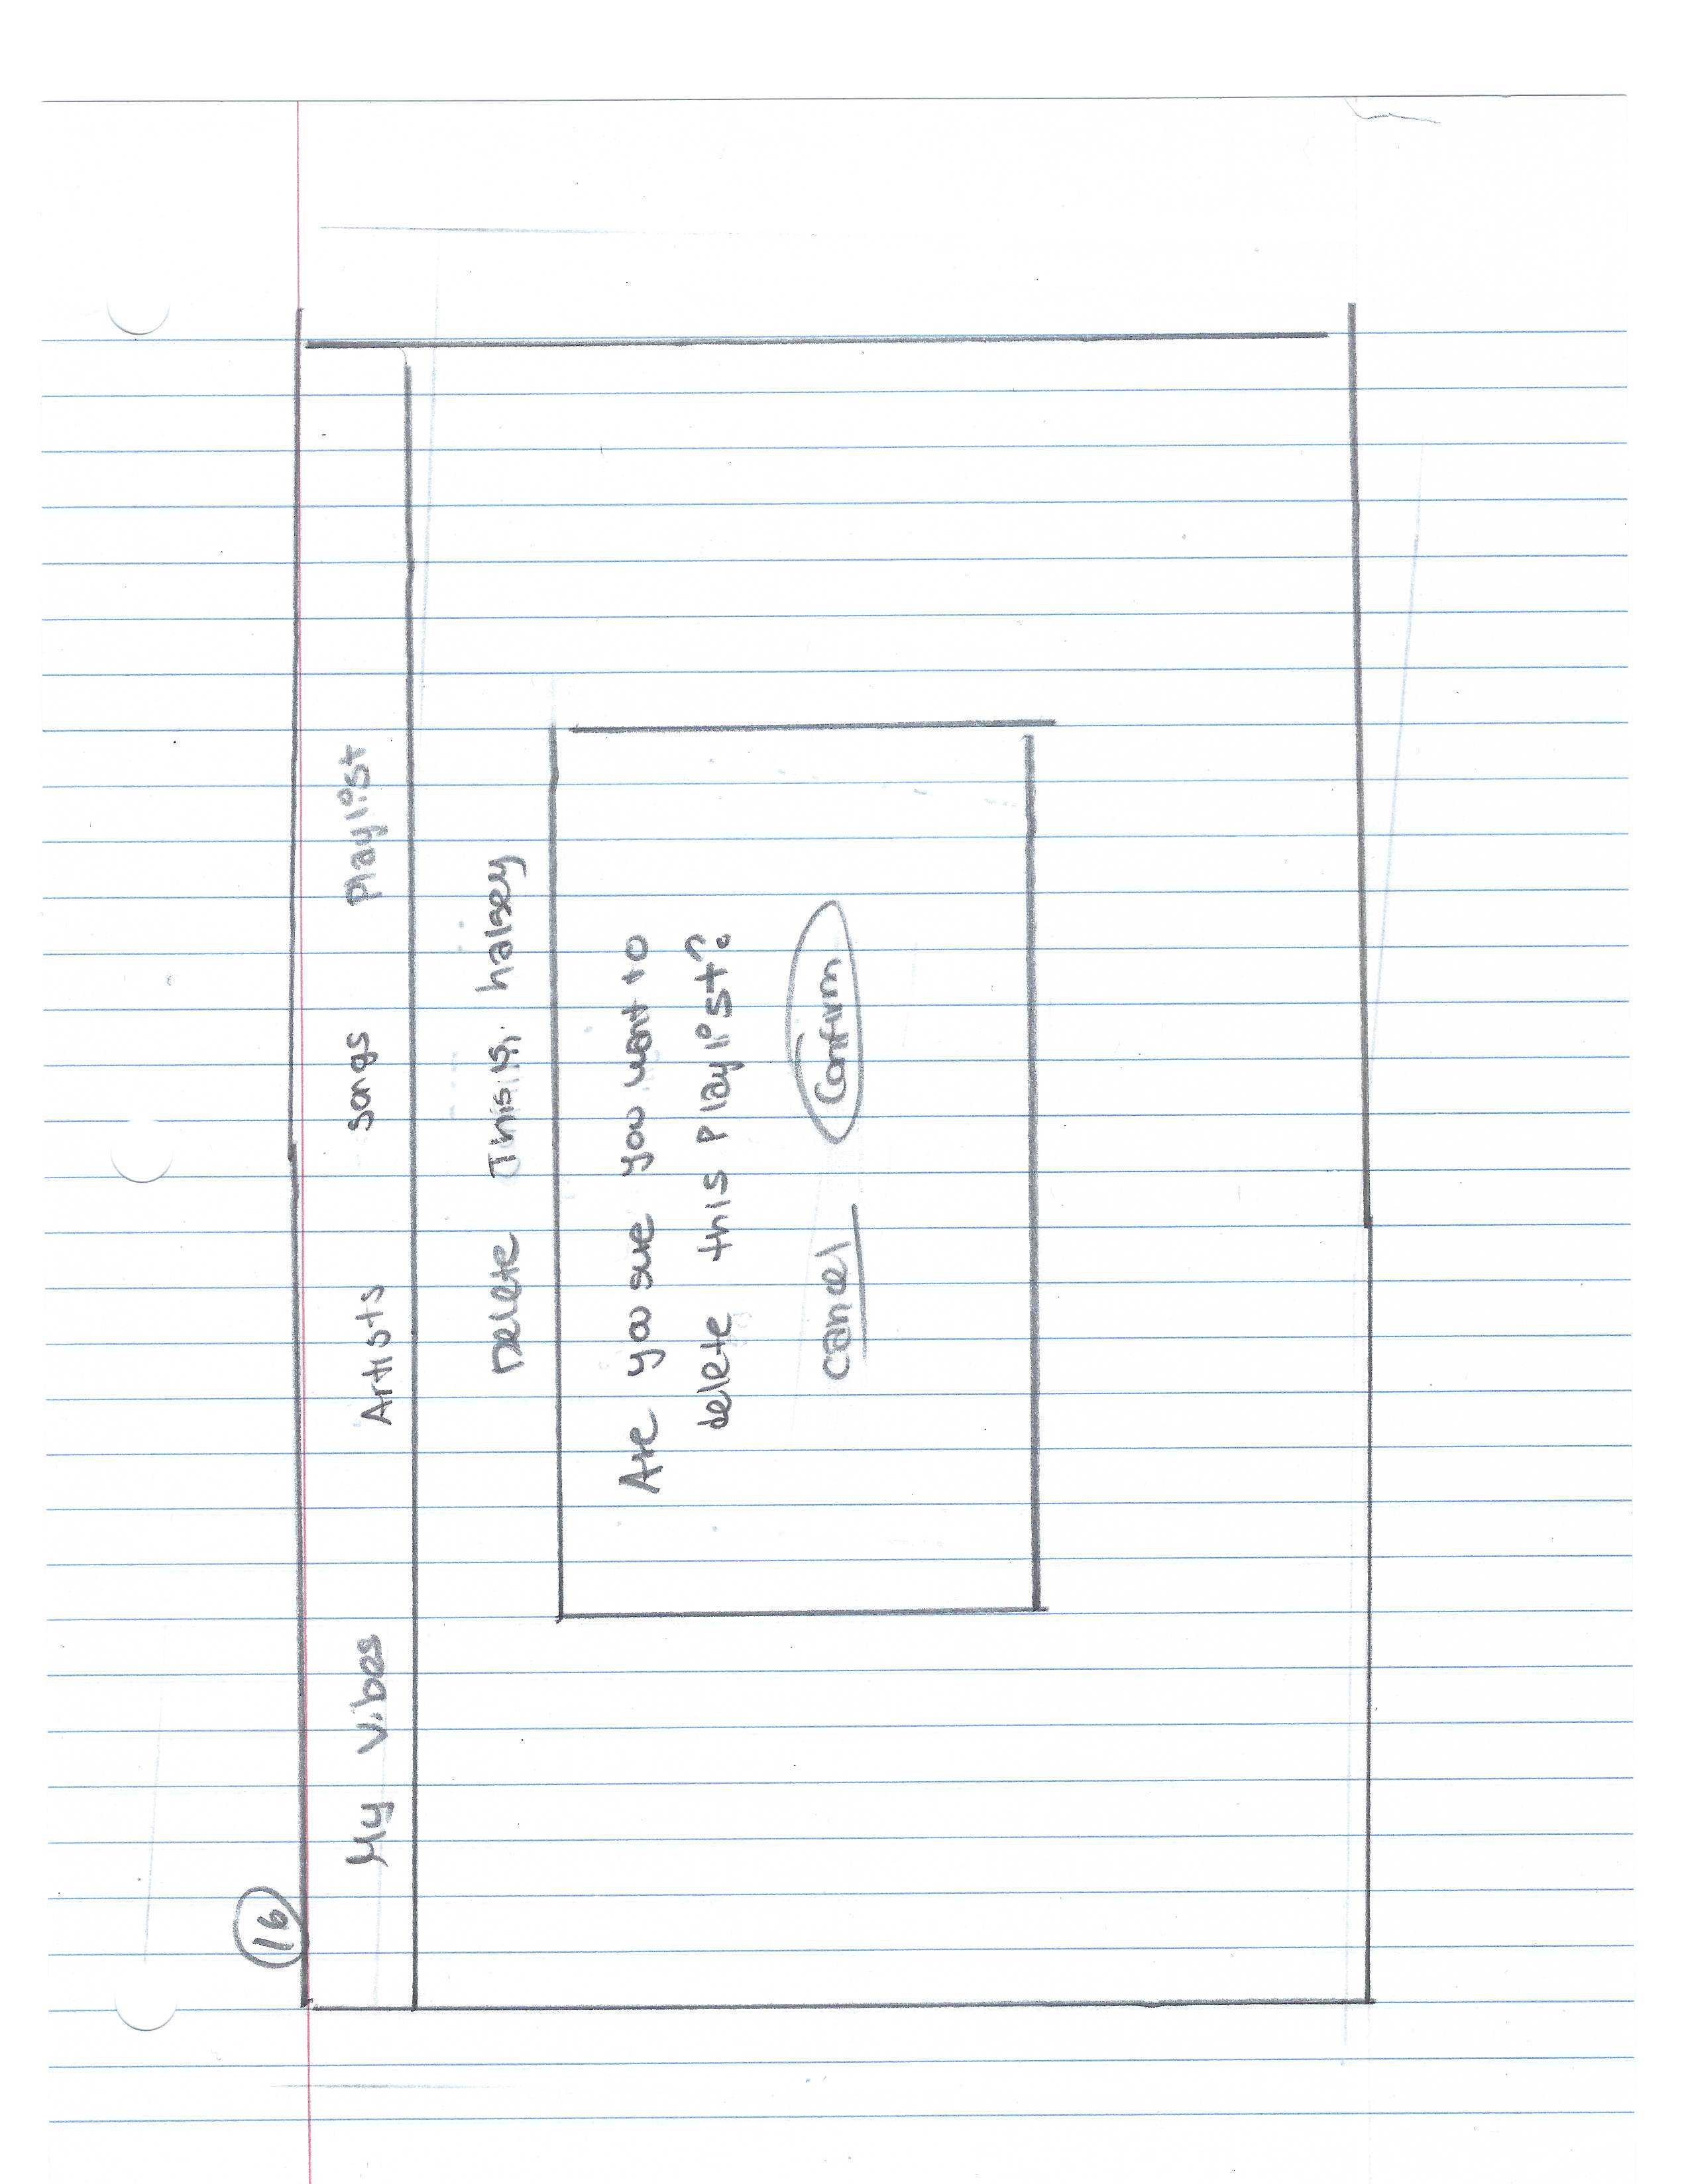 16
My Vibes Artists Songs Playlist
Delete This is halsey
Are you sure you want to
delete this Playlist?
cancel Confirm